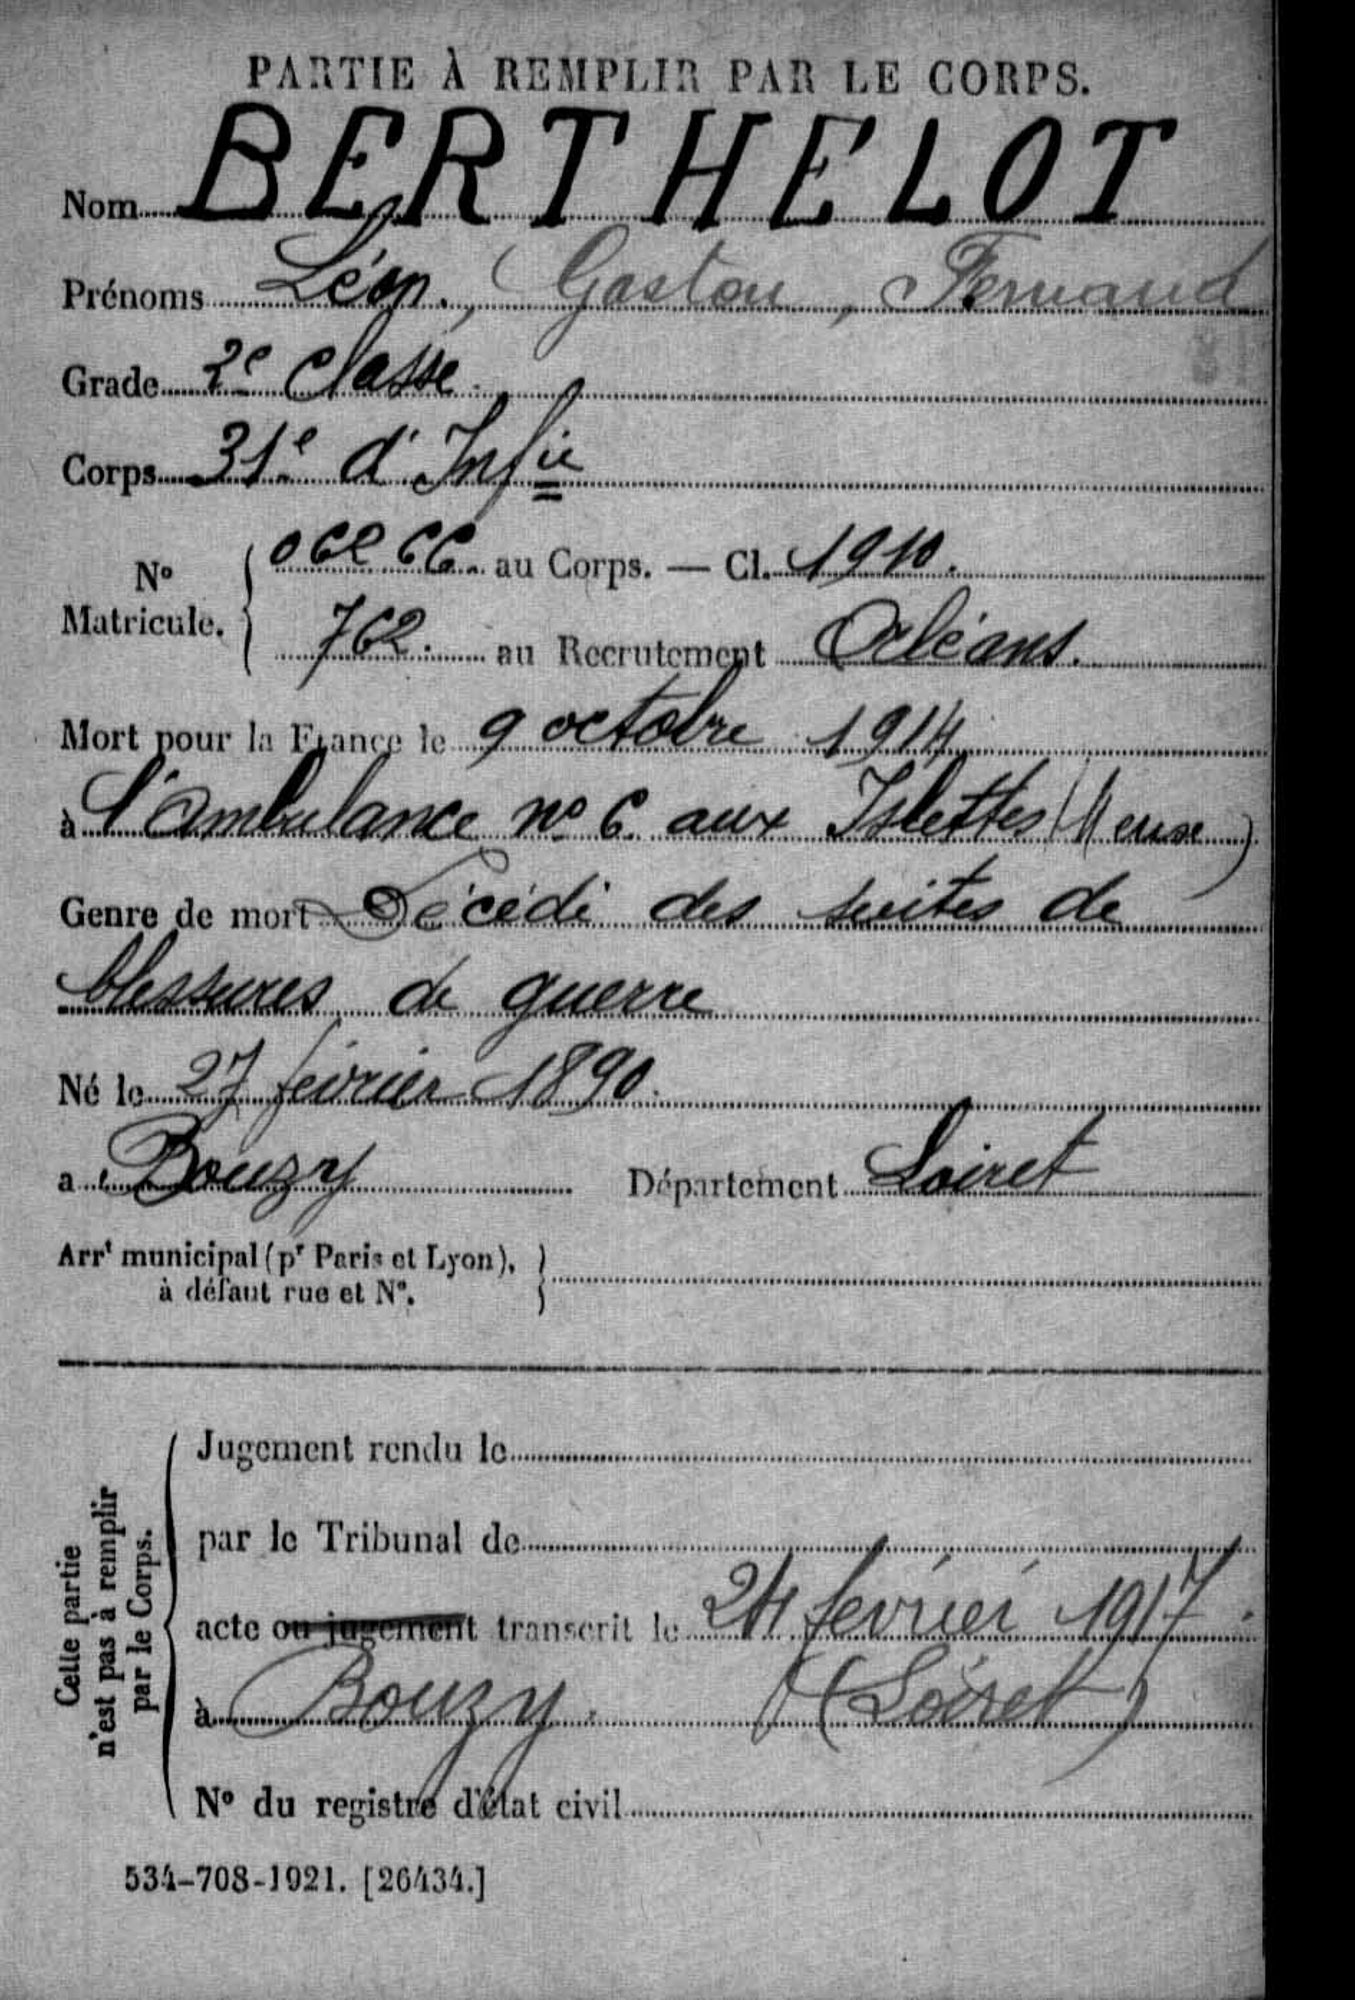 PARTIE À REMPLIR PAR LE CORPS.
Nom BERTHELOT
Prénoms Léon, Gaston, Fernand
Grade 2e Classe.
Corps 31e d'Infie
No Matricule. { 06266. au Corps. — Cl. 1910.
762. au Recrutement Orléans.
Mort pour la France le 9 octobre 1914
à l'ambulance no 6 aux Islettes (Meuse)
Genre de mort Décédé des suites de
blessures de guerre
Né le 27 février 1890.
à Bouzy Département Loiret
Arrt municipal (pr Paris et Lyon), }
à défaut rue et No.
Cette partie
n'est pas à remplir
par le Corps.
Jugement rendu le
par le Tribunal de
acte ou jugement transcrit le 24 février 1917.
à Bouzy. (Loiret)
No du registre d'état civil
534-708-1921. [26434.]